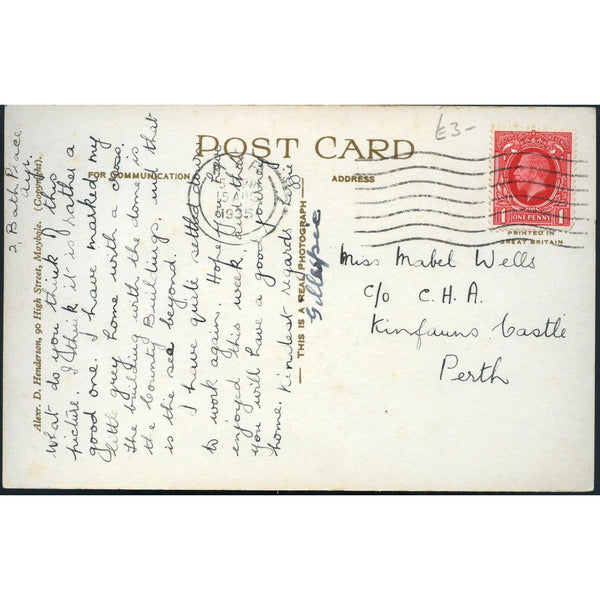 £3-
POST CARD
FOR COMMUNICATION
ADDRESS
1935
1 ONE PENNY 1
PRINTED IN
GREAT BRITAIN
Alexr. D. Henderson, 90 High Street, Maybole. (Copyright).
THIS IS A REAL PHOTOGRAPH
2 Bath Place
Ayr.
What do you think of this
picture. I think it is rather a
good one. I have marked my
little grey home with a cross.
The building with the dome is
the County Buildings, and that
is the sea beyond.
I have quite settled down
to work again. Hope you have
enjoyed this week, and that
you will have a good journey
home. Kindest regards
Gillespie
Miss Mabel Wells
c/o C.H.A.
Kinfauns Castle
Perth